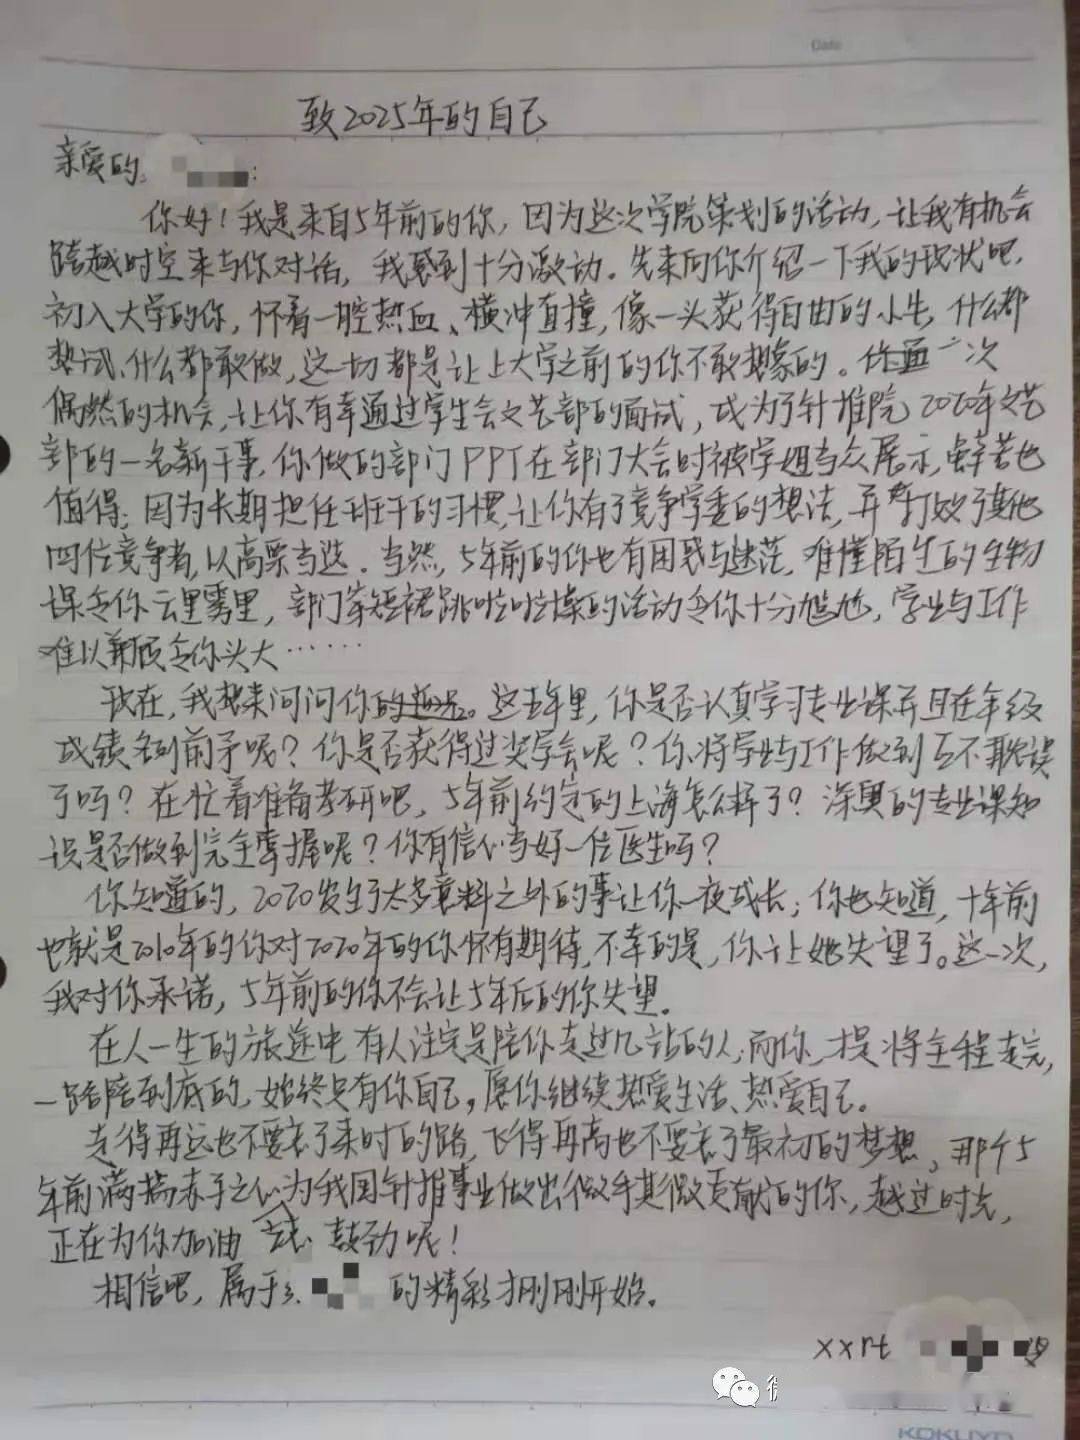 Date
致2025年的自己
亲爱的
你好！我是来自5年前的你，因为这次学院策划的活动，让我有机会
跨越时空来与你对话，我感到十分激动。先来向你介绍一下我的现状吧，
初入大学的你，怀着一腔热血、横冲直撞，像一头获得自由的小牛，什么都
想试、什么都敢做，这一切都是让上大学之前的你不敢想象的。一次
偶然的机会，让你有幸通过学生会文艺部的面试，成为了针推院2020年文艺
部的一名新干事，你做的部门PPT在部门大会时被学姐当众展示，辛苦也
值得；因为长期担任班干的习惯，让你有了竞争学委的想法，并打败了其他
四位竞争者，以高票当选。当然，5年前的你也有困惑与迷茫，难懂陌生的生物
课令你云里雾里，部门穿短裙跳啦啦操的活动令你十分尴尬，学业与工作
难以兼顾令你头大……
现在，我想来问问你。这五年里，你是否认真学习专业课并且在年级
成绩名列前矛呢？你是否获得过奖学金呢？你将学业与工作做到互不耽误
了吗？在忙着准备考研吧，5年前约定的上海怎么样了？深奥的专业课知
识是否做到完全掌握呢？你有信心当好一位医生吗？
你知道的，2020发生了太多意料之外的事让你一夜成长；你也知道，十年前
也就是2010年的你对2020年的你怀有期待，不幸的是，你让她失望了。这一次，
我对你承诺，5年前的你不会让5年后的你失望。
在人一生的旅途中，有人注定是陪你走过几站的人，而你，才是将全程走完，
一路陪到底的，始终只有你自己。愿你继续热爱生活、热爱自己。
走得再远也不要忘了来时的路，飞得再高也不要忘了最初的梦想，那个5
年前满揣赤子之心为我国针推事业做出微乎其微贡献的你，越过时光，
正在为你加油鼓劲呢！
相信吧，属于 的精彩才刚刚开始。
xxrt
KOKUYO